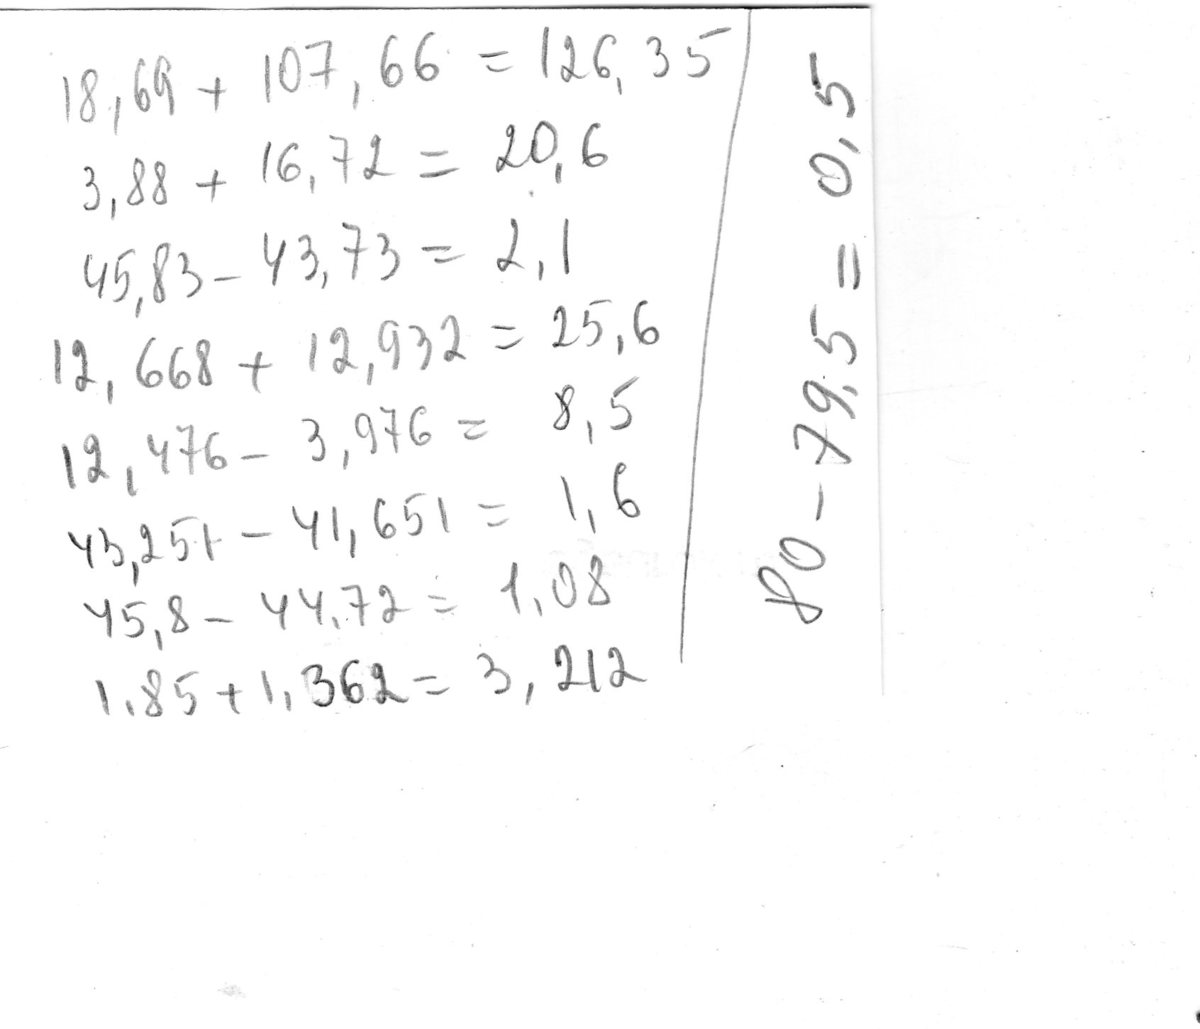 18,69 + 107,66 = 126,35
3,88 + 16,72 = 20,6
45,83 - 43,73 = 2,1
12,668 + 12,932 = 25,6
12,476 - 3,976 = 8,5
43,251 - 41,651 = 1,6
45,8 - 44,72 = 1,08
1,85 + 1,362 = 3,212
80 - 79,5 = 0,5